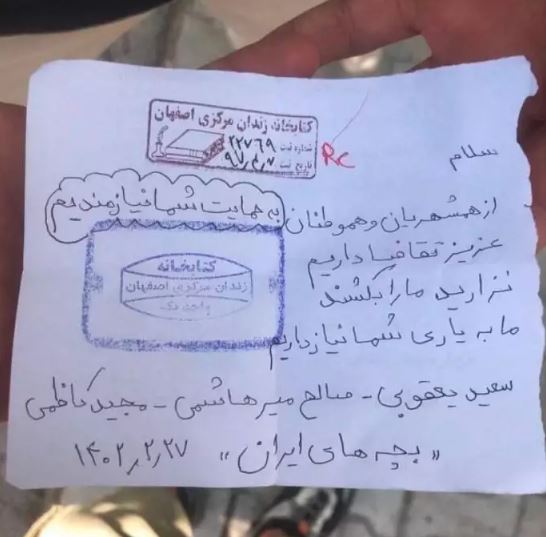 کتابخانه زندان مرکزی اصفهان
شماره ثبت ۲۲۷۶۹
تاریخ ثبت ۹۷,۴,۷
RC
سلام
از همشهریان و هموطنان
به حمایت شما نیازمندیم
عزیز تقاضا داریم
نزارید ما را بکشند
ما به یاری شما نیاز داریم
کتابخانه
زندان مرکزی اصفهان
واحد یک
سعید یعقوبی - صالح میرهاشمی - مجید کاظمی
« بچه های ایران » ۱۴۰۲,۲,۲۷